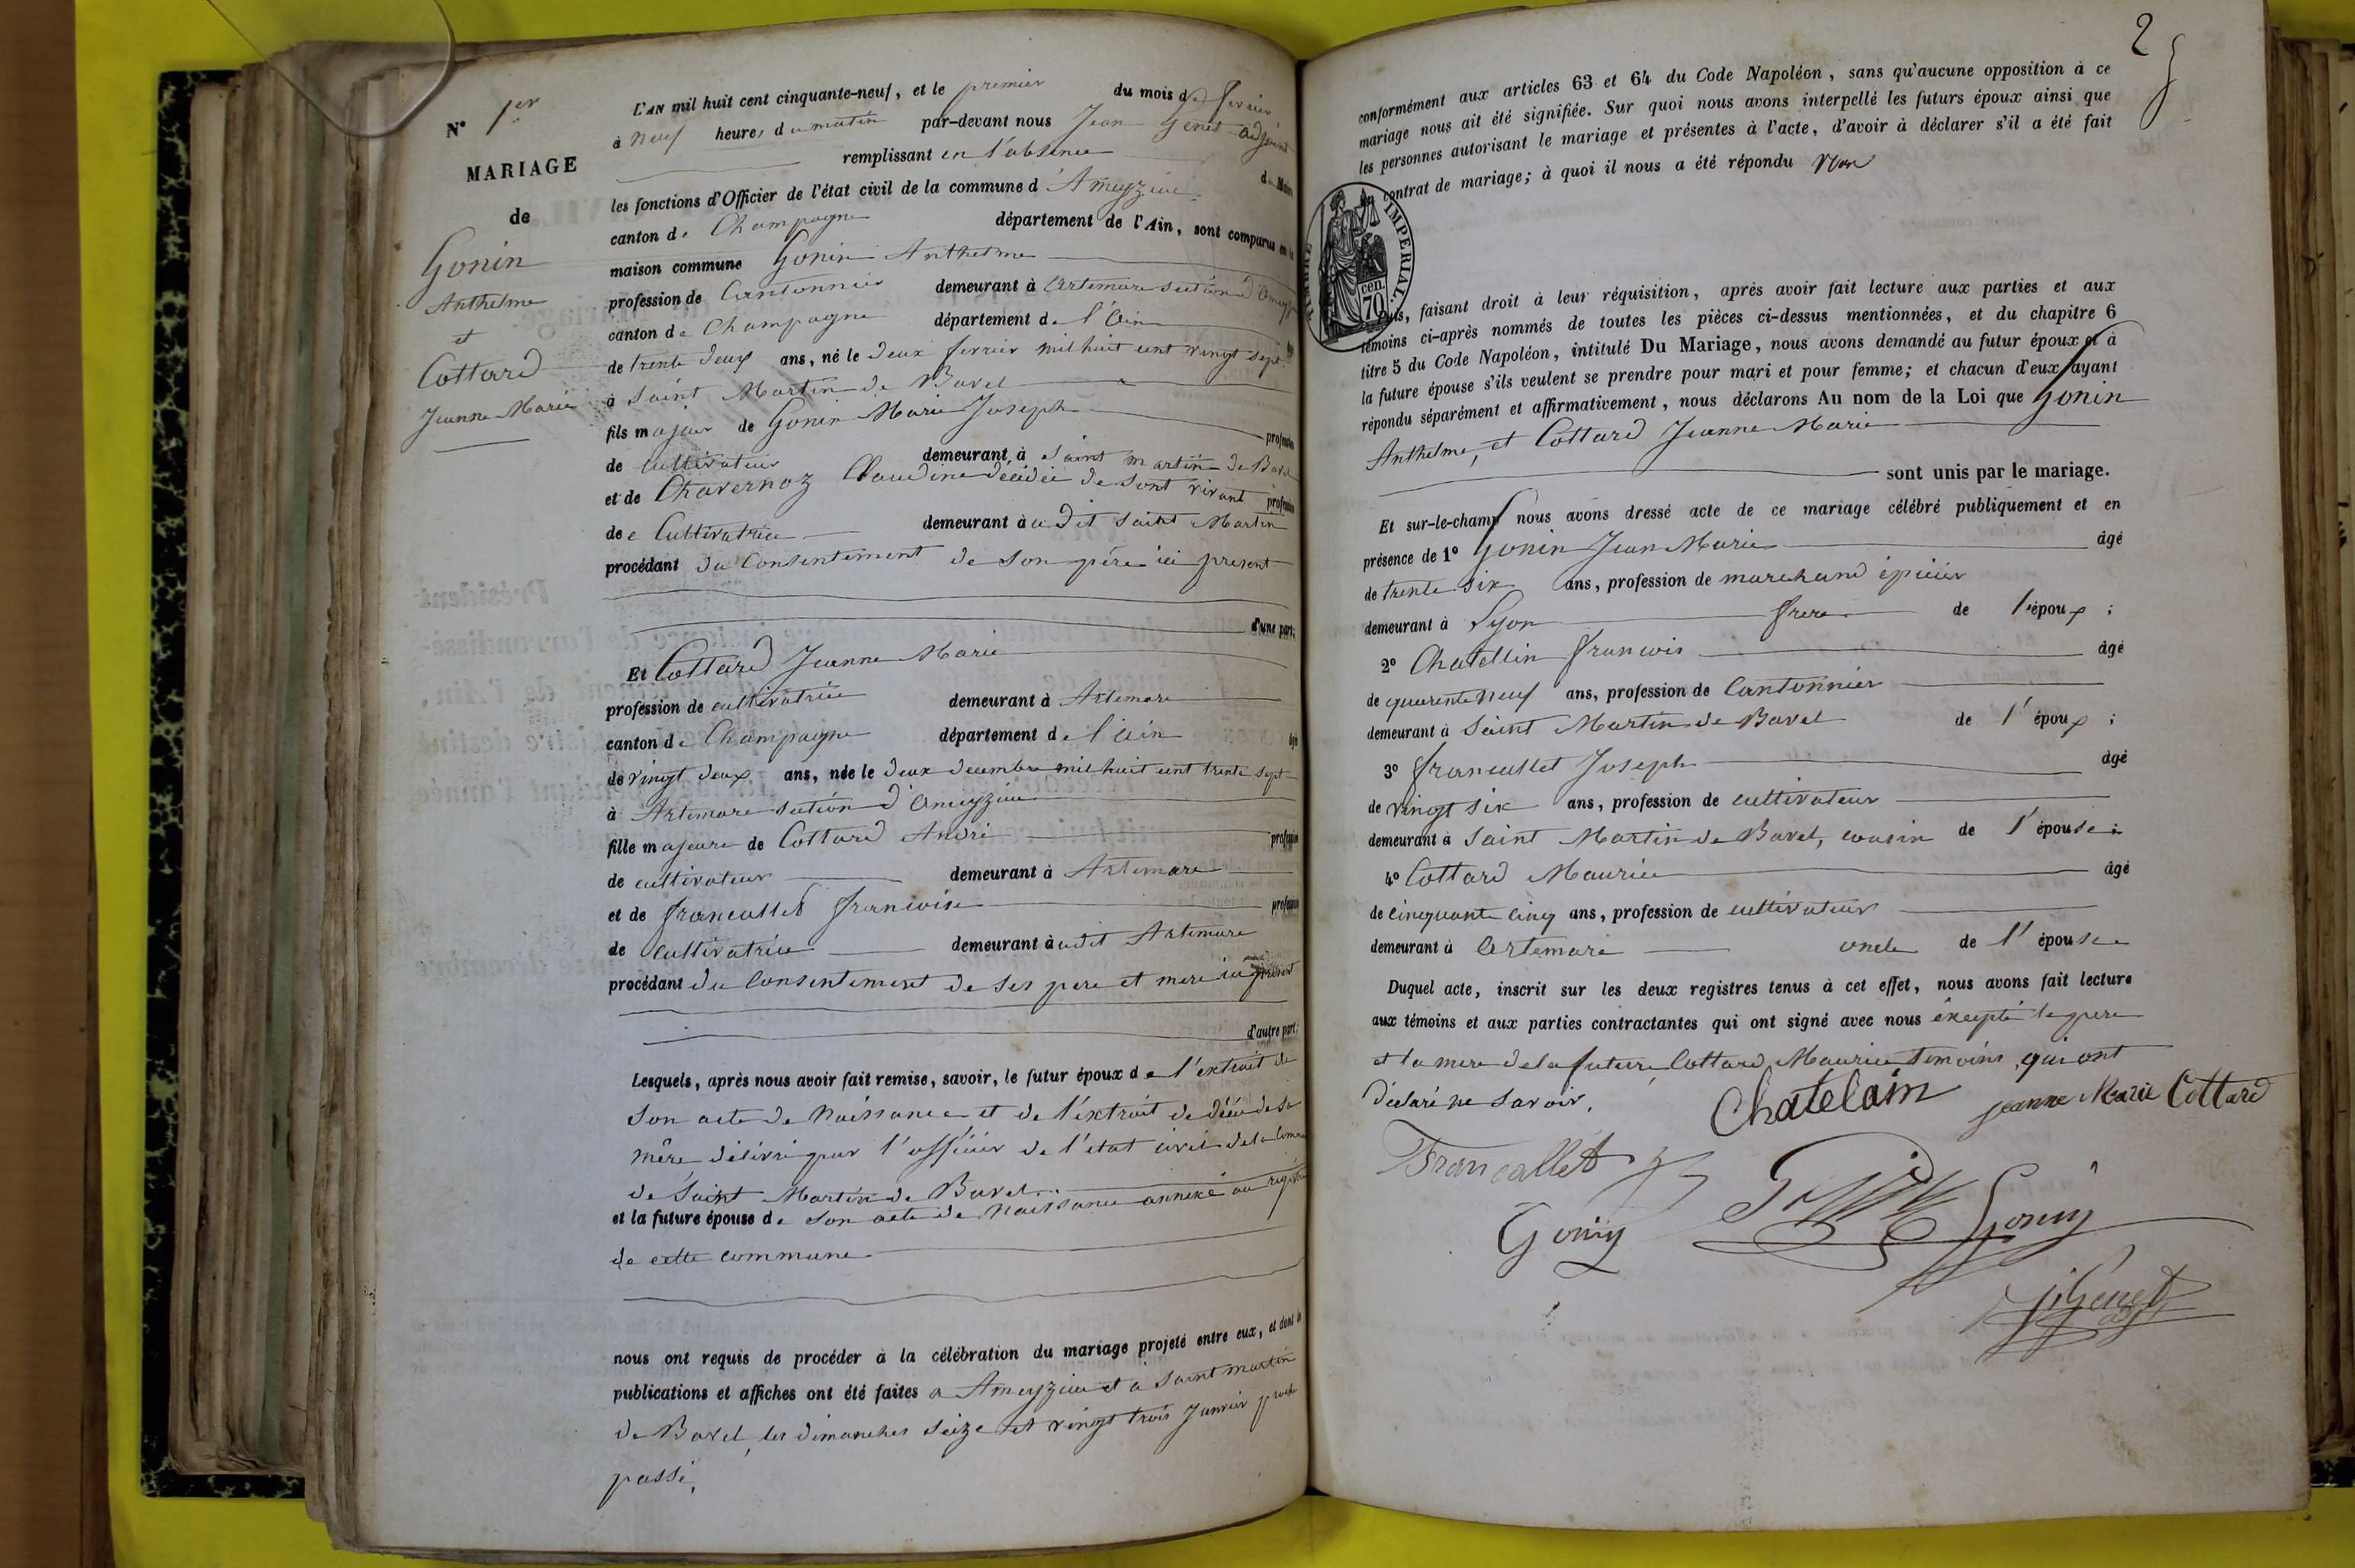 N° 1er
MARIAGE
de
Gonin
Anthelme
et
Cottard
Jeanne Marie
L'AN mil huit cent cinquante-neuf, et le premier du mois de fevrier
à neuf heures du matin par-devant nous Jean Genet adjoint
remplissant en l'absence du Maire
les fonctions d'Officier de l'état civil de la commune d'Ameyzieu
canton de Champagne département de l'Ain, sont comparus en la
maison commune Gonin Anthelme
profession de Cantonnier demeurant à Artemare section d'Ameyzieu
canton de Champagne département de l'Ain
de trente deux ans, né le deux fevrier mil huit cent vingt sept
à Saint Martin de Bavel
fils majeur de Gonin Marie Joseph profession
de cultivateur demeurant à Saint Martin de Bavel
et de Chavernoz Claudine décédée de sont vivant profession
de e Cultivatrice demeurant à udit Saint Martin
procédant du Consentement de son père ici present
d'une part;
Et Cottard Jeanne Marie
profession de cultivatrice demeurant à Artemare
canton de Champagne département de l'ain âgée
de vingt deux ans, née le deux decembre mil huit cent trente sept
à Artemare section d'Ameyzieu
fille majeure de Cottard André profession
de cultivateur demeurant à Artemare
et de francallet francoise profession
de Cultivatrice demeurant à udit Artemare
procédant du Consentement de ses pere et mere ici present
d'autre part:
Lesquels, après nous avoir fait remise, savoir, le futur époux de l'extrait de
son acte de Naissance et de l'extrait de décé de sa
mère délivré par l'officier de l'état civil de la Commune
de Saint Martin de Bavel
et la future épouse de son acte de Naissance annexé au registre
de cette commune
nous ont requis de procéder à la célébration du mariage projeté entre eux, et dont les
publications et affiches ont été faites a Ameyzieu et à Saint Martin
de Bavel, les dimanches seize et vingt trois Janvier proche
passé,
2
conformément aux articles 63 et 64 du Code Napoléon, sans qu'aucune opposition à ce
mariage nous ait été signifiée. Sur quoi nous avons interpellé les futurs époux ainsi que
les personnes autorisant le mariage et présentes à l'acte, d'avoir à déclarer s'il a été fait
contrat de mariage; à quoi il nous a été répondu Non
TIMBRE IMPERIAL.
70 cen.
Nous, faisant droit à leur réquisition, après avoir fait lecture aux parties et aux
témoins ci-après nommés de toutes les pièces ci-dessus mentionnées, et du chapitre 6
titre 5 du Code Napoléon, intitulé Du Mariage, nous avons demandé au futur époux et à
la future épouse s'ils veulent se prendre pour mari et pour femme; et chacun d'eux ayant
répondu séparément et affirmativement, nous déclarons Au nom de la Loi que Gonin
Anthelme, et Cottard Jeanne Marie
sont unis par le mariage.
Et sur-le-champ nous avons dressé acte de ce mariage célébré publiquement et en
présence de 1° Gonin Jean Marie âgé
de trente six ans, profession de marchand épicier
demeurant à Lyon frere de l'époux;
2° Chatellin francois âgé
de quarente neuf ans, profession de Cantonnier
demeurant à Saint Martin de Bavel de l'époux;
3° francallet Joseph âgé
de vingt six ans, profession de cultivateur
demeurant à Saint Martin de Bavel, cousin de l'épouse;
4° Cottard Maurice âgé
de cinquante cinq ans, profession de cultivateur
demeurant à Artemare oncle de l'épouse
Duquel acte, inscrit sur les deux registres tenus à cet effet, nous avons fait lecture
aux témoins et aux parties contractantes qui ont signé avec nous éxcepté le pere
et la mere de la future, Cottard Maurice temoins, qui ont
déclaré ne savoir.
Chatelain Jeanne Marie Cottard
Francallet
Gonin Gonin
J Genet adjt